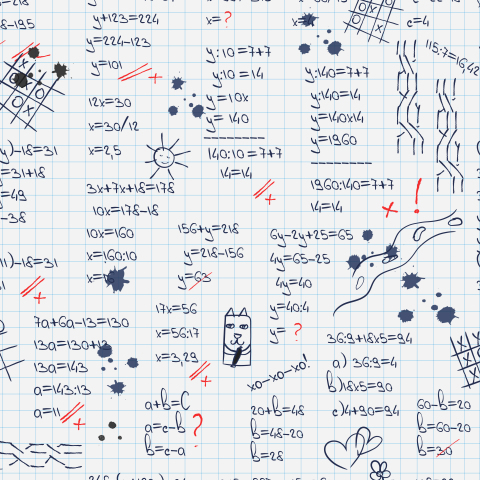 y+123=224
y=224-123
y=101
x=?
c=4
115:7=16,42
y:10=7+7
y:10=14
y=10x
y=140
140:10=7+7
14=14
y:140=7+7
y:140=14
y=140x14
y=1960
1960:140=7+7
14=14
!
12x=30
x=30/12
x=2,5
y)-18=31
=31+18
=49
-38
3x+7x+18=178
10x=178-18
10x=160
x=160:10
156+y=218
y=218-156
y=63
6y-2y+25=65
4y=65-25
4y=40
y=40:4
y=?
11)-18=31
7a+6a-13=130
13a=130+13
13a=143
a=143:13
a=11
17x=56
x=56:17
x=3,29
xo-xo-xo!
36:9+18x5=94
a) 36:9=4
b)18x5=90
c)4+90=94
a+b=c
a=c-b
b=c-a
?
20+b=48
b=48-20
b=28
60-b=20
b=60-20
b=30